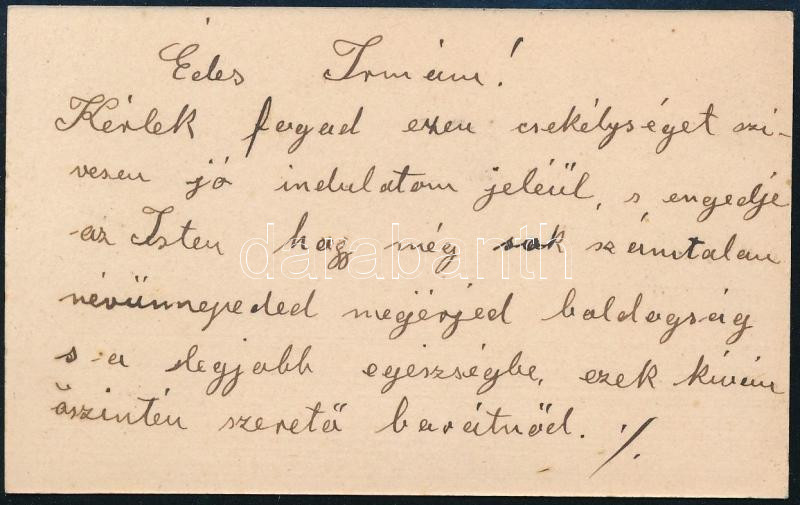 Édes Irmám!
Kérlek fogad ezen csekélységet szi-
vesen jó indulatom jeléül, s engedje
az Isten hogy még sok számtalan
névünnepeded megérjed boldogság
s a legjobb egészségbe, ezek kíván
őszintén szerető barátnőd. ./.
darabanth